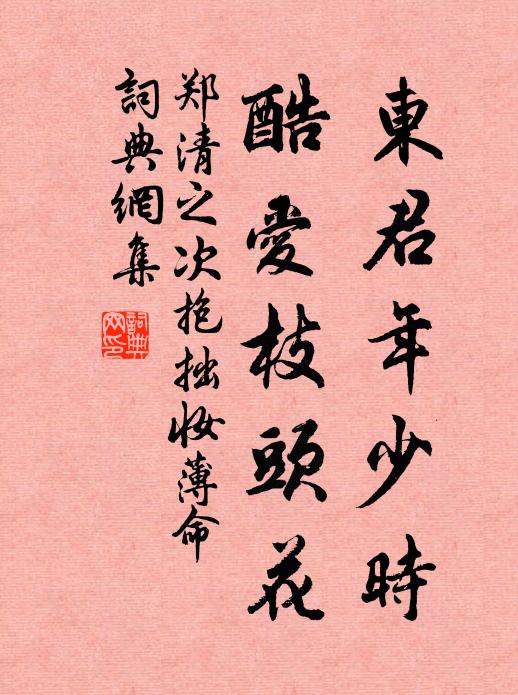 東君年少時
酷愛枝頭花
郑清之次抱拙妆薄命
詞典網集
詞典網印